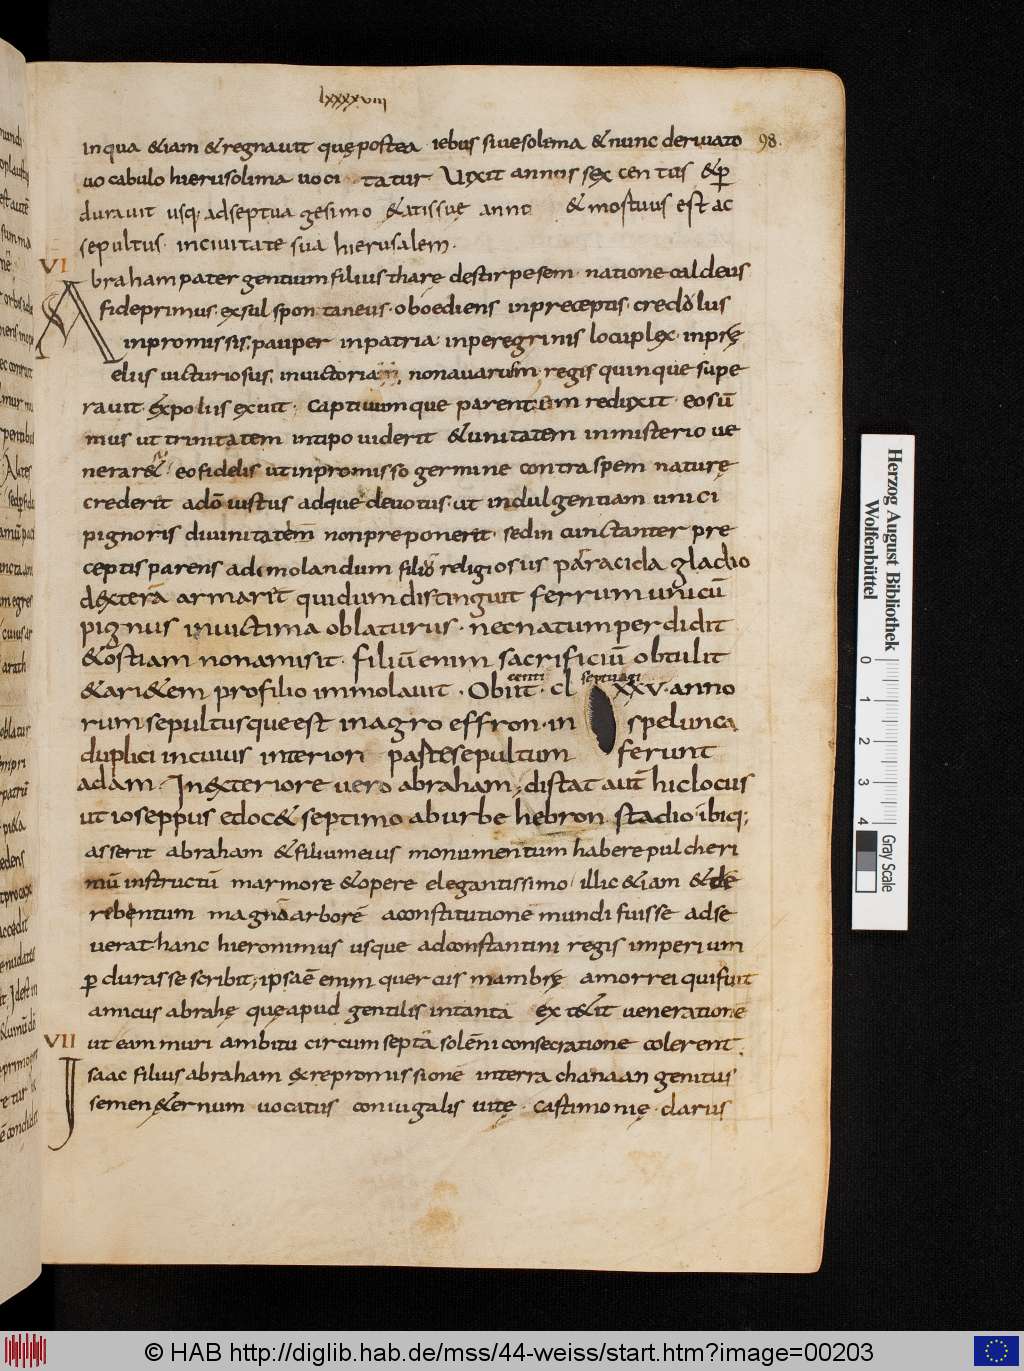 lxxxxviii
in qua &iam &regnauit quę postea iebus siue solema &nunc deriuato 98.
uocabulo hierusolima uoci tatur Uixit annos sex centus &ꝑ
durauit usq; adseptua gesimo &atissuę anno &mostuus est ac
sepultus· inciuitate sua hierusalem·
VI
Abraham pater gentium filius tharę destirpe sem· natione caldeus
fide primus· exsul spontaneus· oboediens inpreceptis· credolus
inpromissis; pauper inpatria inperegrinis locuplex· inprę
eliis uicturiosus, inuictoria nonauarum· regis quinque supe
rauit· &xpoliis exuit· captiuumque parentum reduxit· eosū
mus ut trinitatem intipo uiderit &unitatem inmisterio ue
nerar& eofidelis utinpromisso germine contra spem naturę
crederit adō iustus adque deuotus· ut indulgentiam unici
pignoris diuinitatem nonpreponerit· sedin cunctanter pre
ceptis parens adimolandum filiū religiosus paracida gladio
d&xterā armarit quidum distinguit ferrum unicū
pignus inuictima oblaturus· necnatum perdidit
&ostiam nonamisit· filiū enim sacrificiū obtulit
&ari&em profilio immolauit· Obiit· centi cl septuagi xxv· anno
rum sepultusque est inagro effron· in spelunca
duplici incuius interiori paste sepultum ferunt
adam· In&xteriore uero abraham; distat autē hiclocus
ut ioseppus edoc& septimo aburbe hebron stadio· ibiq;
asserit abraham &filium eius monumentum habere pulcheri
mū instructū marmore &opere elegantissimo illic &iam &de
rebentum magnō arborē aconstitutione mundi fuisse adse
uerat hanc hieronimus usque adconstantini regis imperium
ꝑdurasse scribit; ipsaē enim quercus mambrę amorrei quifuit
amicus abrahę quę apud gentilis intanta ex t&it ueneratione
VII ut eam muri ambitu circumseptā solēni consecratione colerent
Isaac filius abraham &x repromissione interra chanaan genitus
semen &ernum uocatus coniugalis uitę· castimonię· clarus
Herzog August Bibliothek
Wolfenbüttel
0 1 2 3 4
Gray Scale
© HAB http://diglib.hab.de/mss/44-weiss/start.htm?image=00203